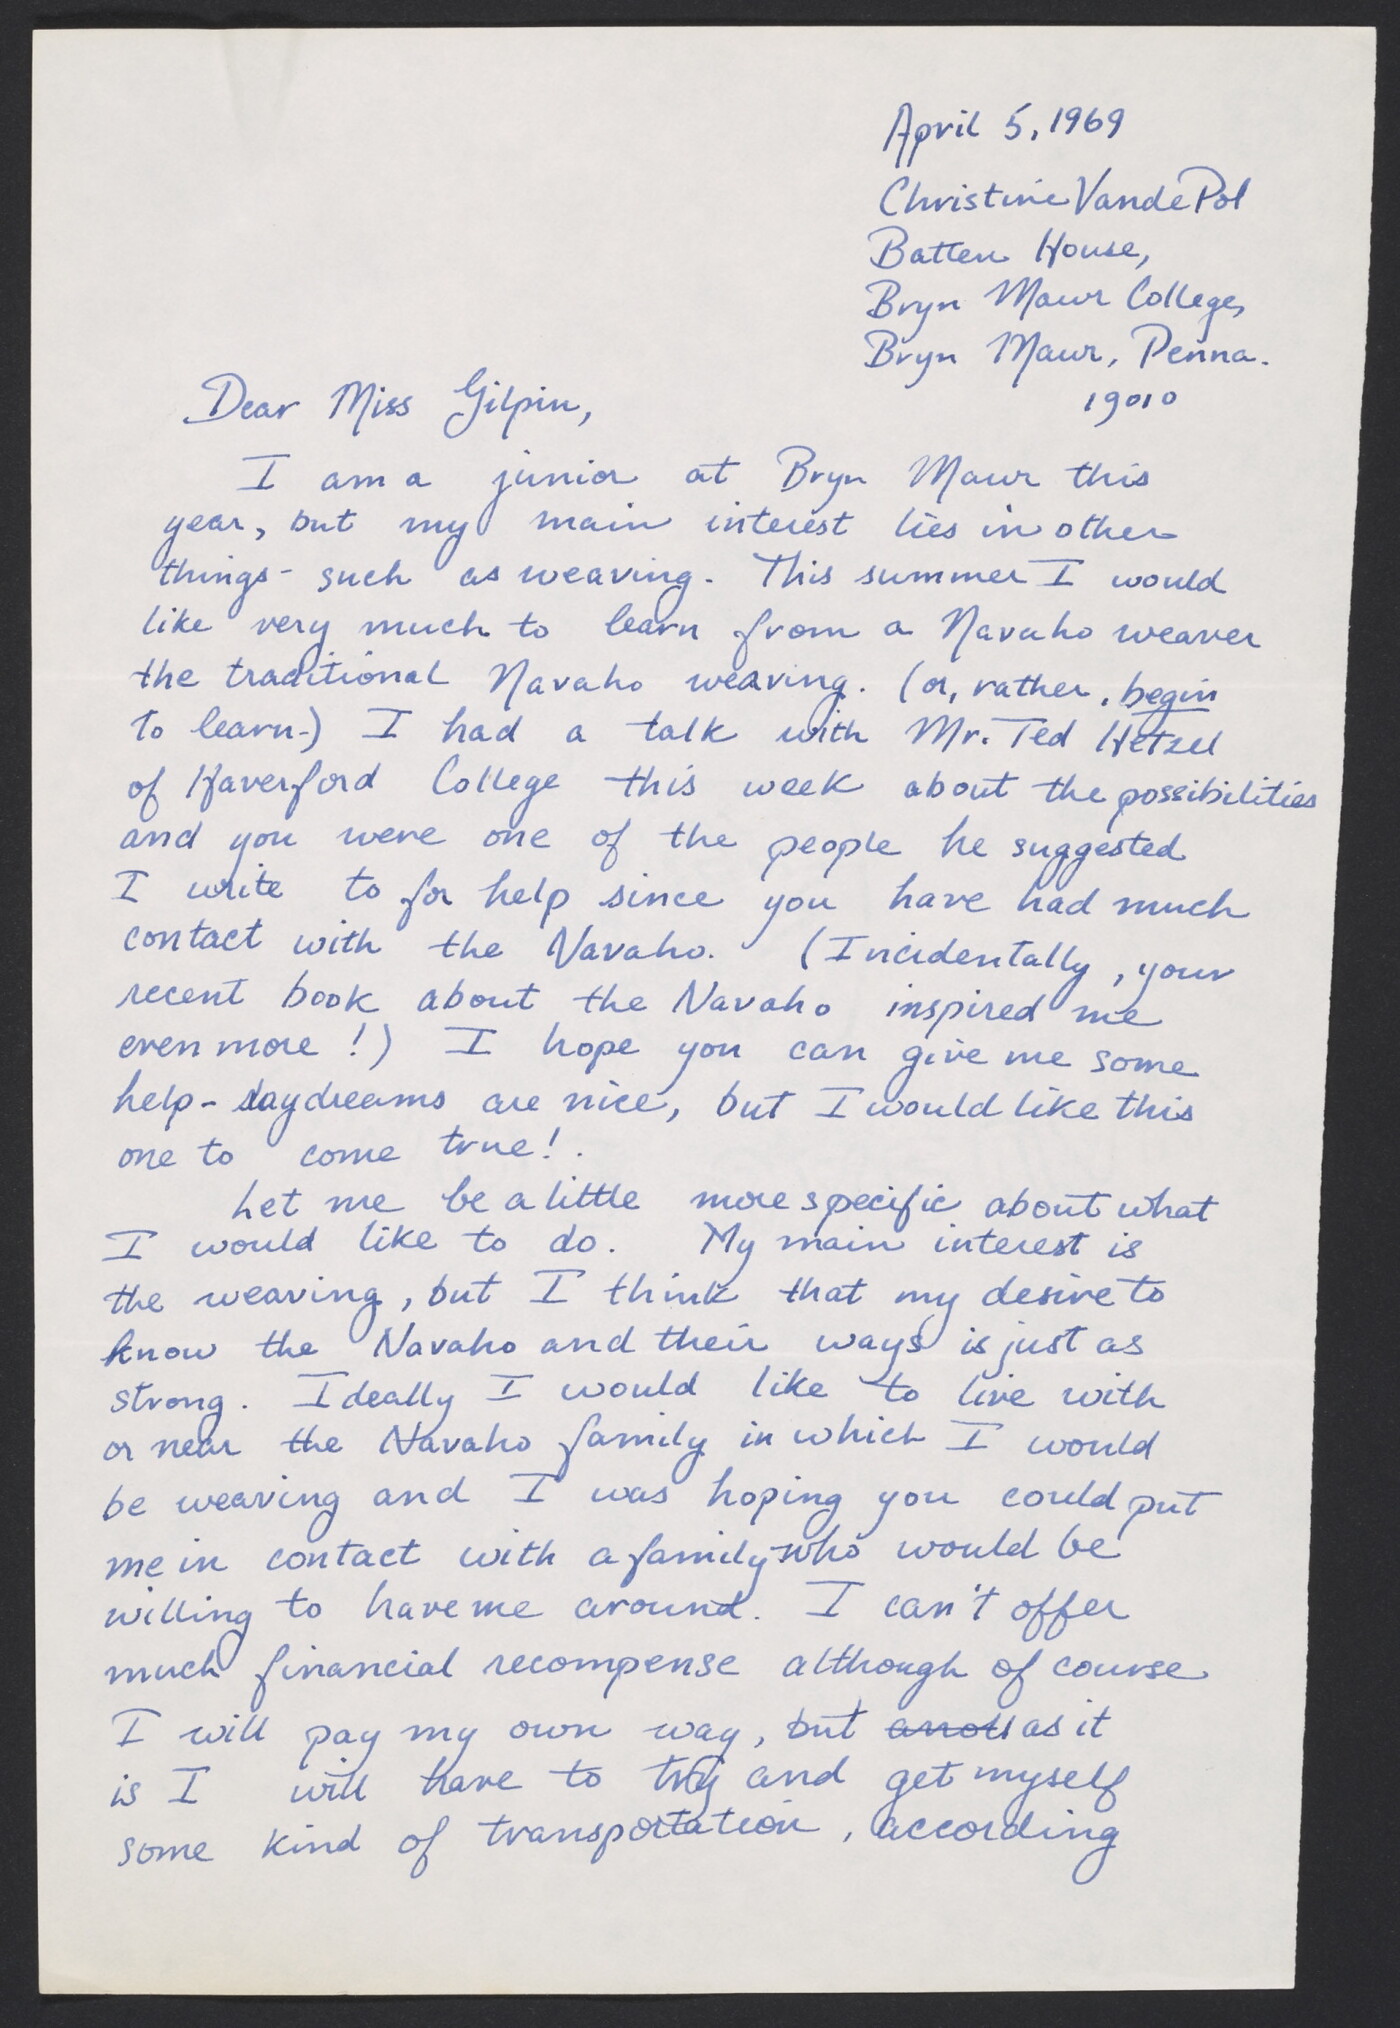 April 5, 1969
Christine VandePol
Batten House,
Bryn Mawr College,
Bryn Mawr, Penna.
19010
Dear Miss Gilpin,
I am a junior at Bryn Mawr this
year, but my main interest lies in other
things - such as weaving. This summer I would
like very much to learn from a Navaho weaver
the traditional Navaho weaving. (or, rather, begin
to learn.) I had a talk with Mr. Ted Hetzel
of Haverford College this week about the possibilities
and you were one of the people he suggested
I write to for help since you have had much
contact with the Navaho. (Incidentally, your
recent book about the Navaho inspired me
even more!) I hope you can give me some
help - daydreams are nice, but I would like this
one to come true!.
Let me be a little more specific about what
I would like to do. My main interest is
the weaving, but I think that my desire to
know the Navaho and their ways is just as
strong. Ideally I would like to live with
or near the Navaho family in which I would
be weaving and I was hoping you could put
me in contact with a family who would be
willing to have me around. I can't offer
much financial recompense although of course
I will pay my own way, but as it
is I will have to try and get myself
some kind of transportation, according